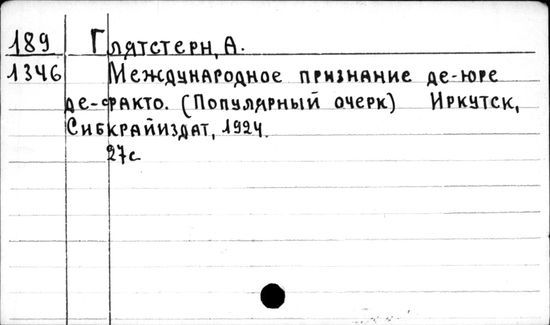 189 Глятстерн, А.
1346 Международное признание де-юре
де-факто. (Популярный очерк) Иркутск,
Сибкрайиздат, 1924.
27с